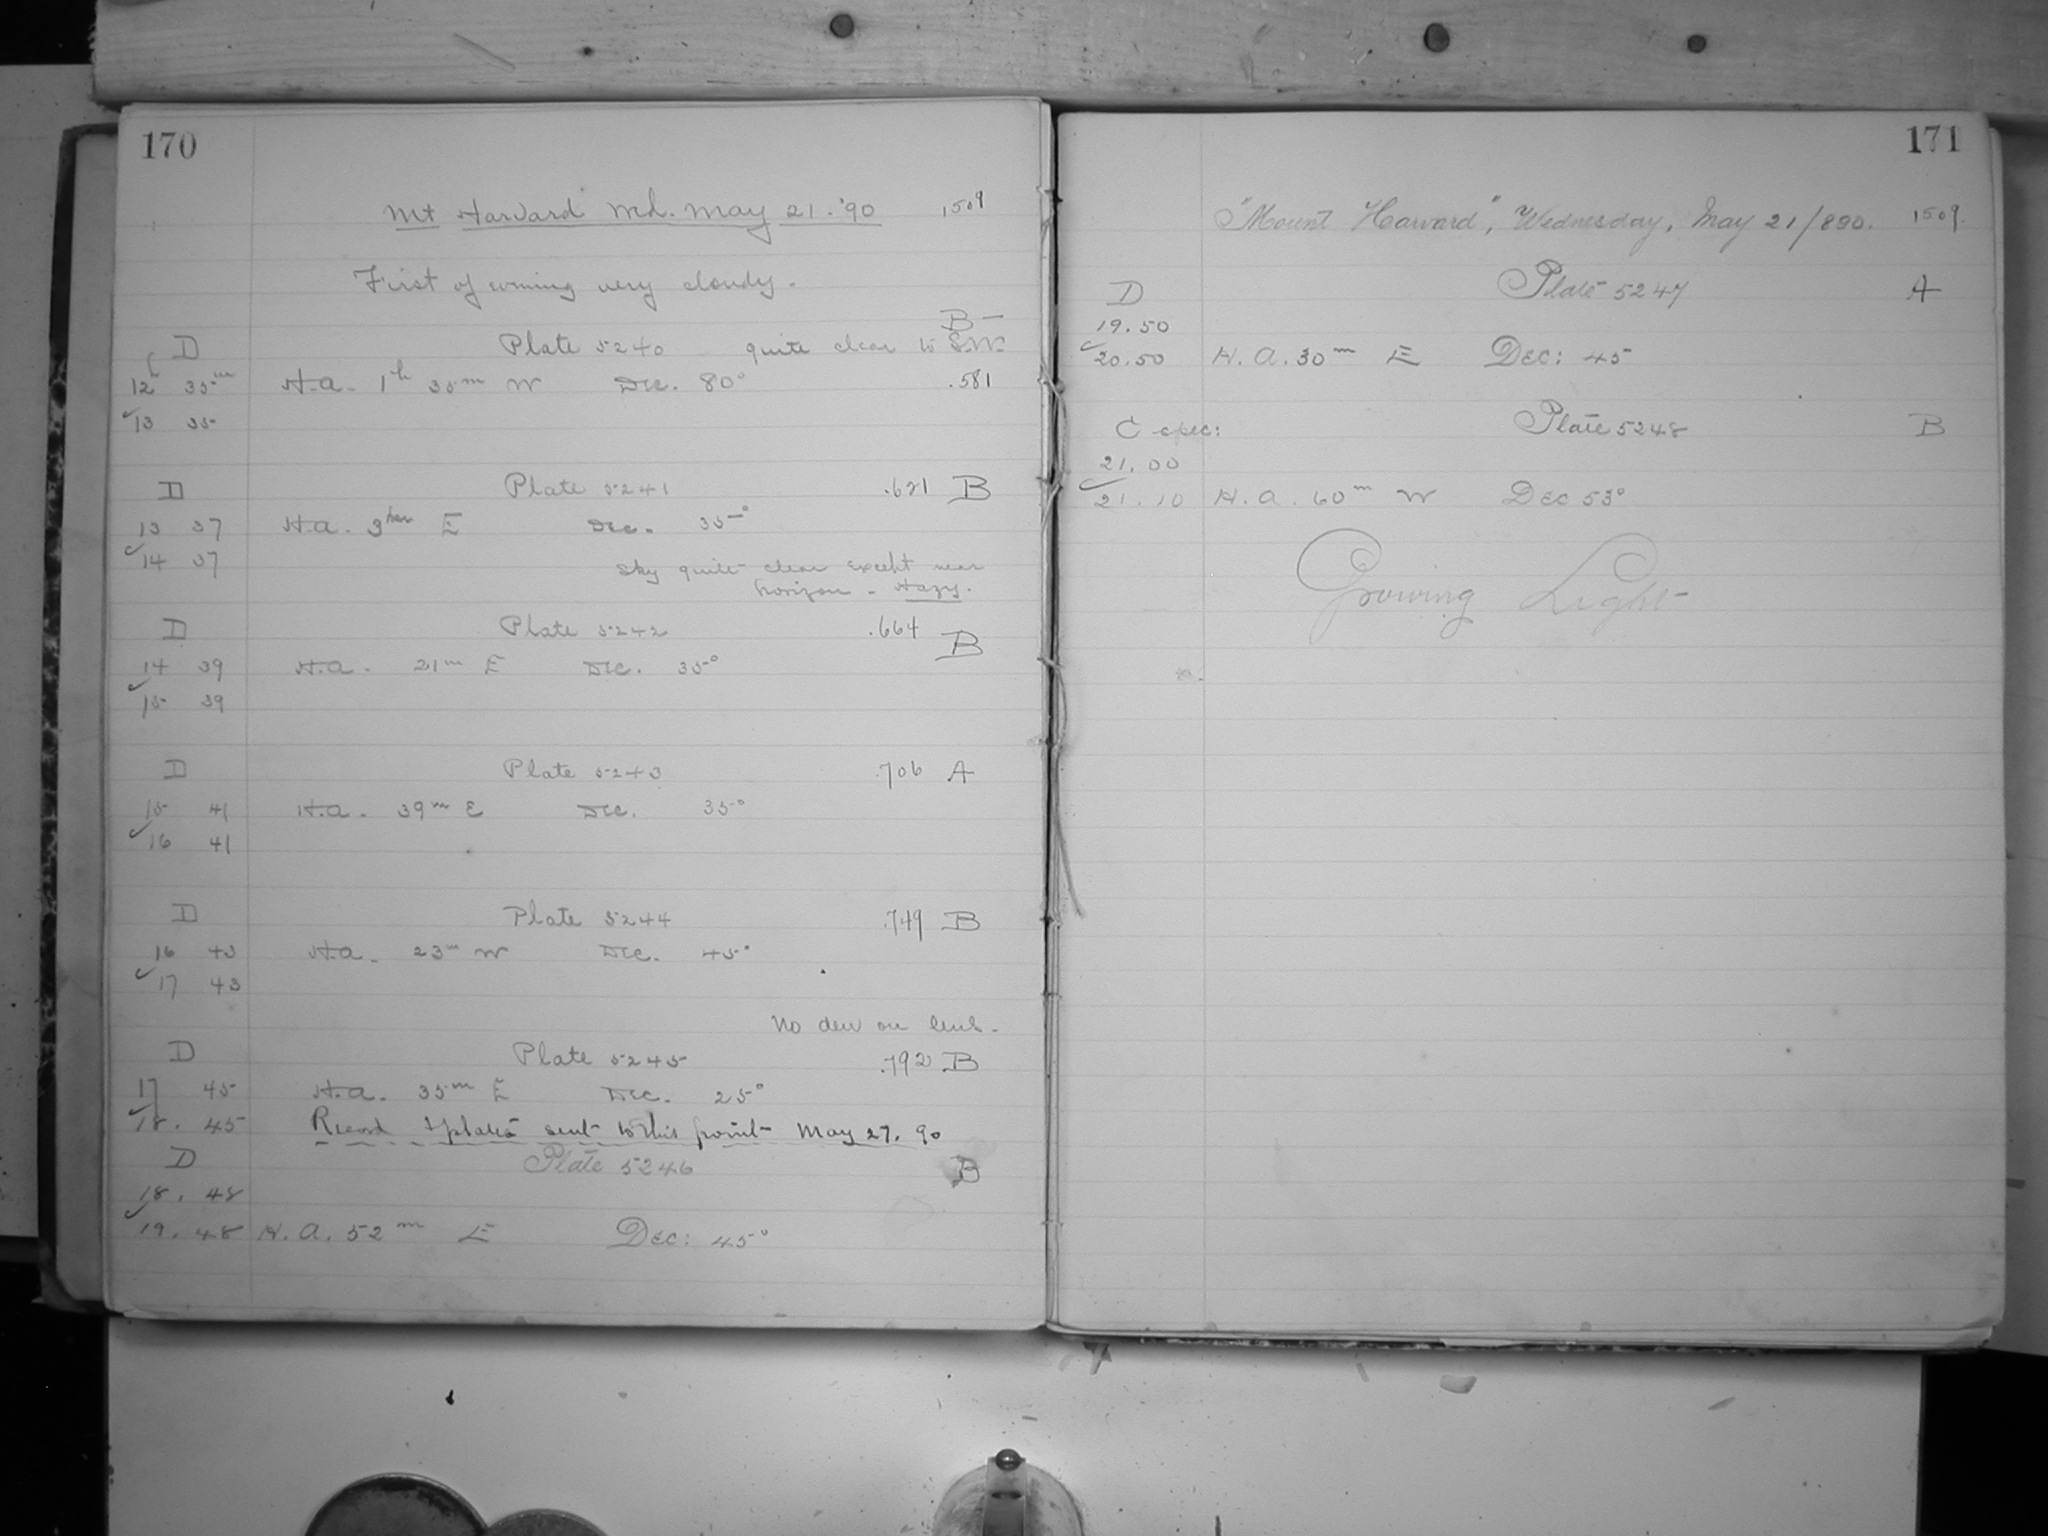 170
Mt Harvard Wd. May 21. '90 1509
First of evening very cloudy.
B-
D Plate 5240 quite clear to S.W.
12h 35m H.A. 1h 35m W Dec. 80° .581
13 35
D Plate 5241 .621 B
13 37 H.A. 3 hrs E Dec. 35°
14 37 Sky quite clear except near
horizon - Hazy.
D Plate 5242 .664 B
14 39 H.A. 21m E Dec. 35°
15 39
D Plate 5243 .706 A
15 41 H.A. 39m E Dec. 35°
16 41
D Plate 5244 .749 B
16 43 H.A. 23m W Dec. 45°
17 43
No dew on lens.
D Plate 5245 .792 B
17 45 H.A. 35m E Dec. 25°
18. 45 Record & plates sent to this point May 27. 90
D Plate 5246 B
18. 48
19. 48 H.A. 52m E Dec: 45°
171
"Mount Harvard", Wednesday, May 21/890. 1509.
D Plate 5247 A
19.50
20.50 H.A. 30m E Dec: 45
C spec: Plate 5248 B
21.00
21.10 H.A. 60m W Dec 53°
Growing Light